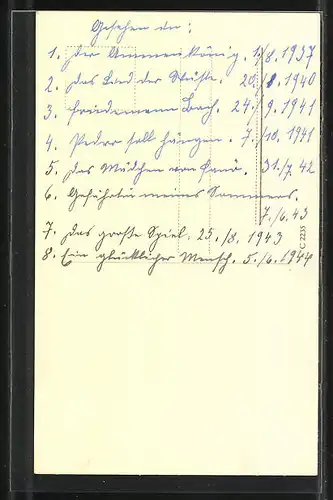 Gesehen in:
1. Der Ammenkönig. 1./8. 1937
2. Das Lied der Wüste. 20./8. 1940
3. Friedemann Bach. 24./9. 1941
4. Pedro soll hängen. 7./10. 1941
5. Das Mädchen von Fanö. 31./7. 42
6. Gefährtin meines Sommers.
7./6.43
7. Das große Spiel. 25./8. 1943
8. Ein glücklicher Mensch. 5./6. 1944
C 2235